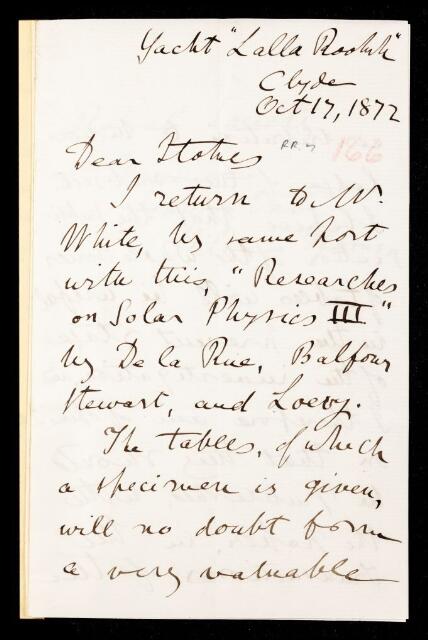 Yacht "Lalla Rookh"
Clyde
Oct 17, 1872
RR.7
166
Dear Stokes
I return to Mr.
White, by same post
with this, "Researches
on Solar Physics III"
by De la Rue, Balfour
Stewart, and Loewy.
The tables, of which
a specimen is given,
will no doubt form
a very valuable